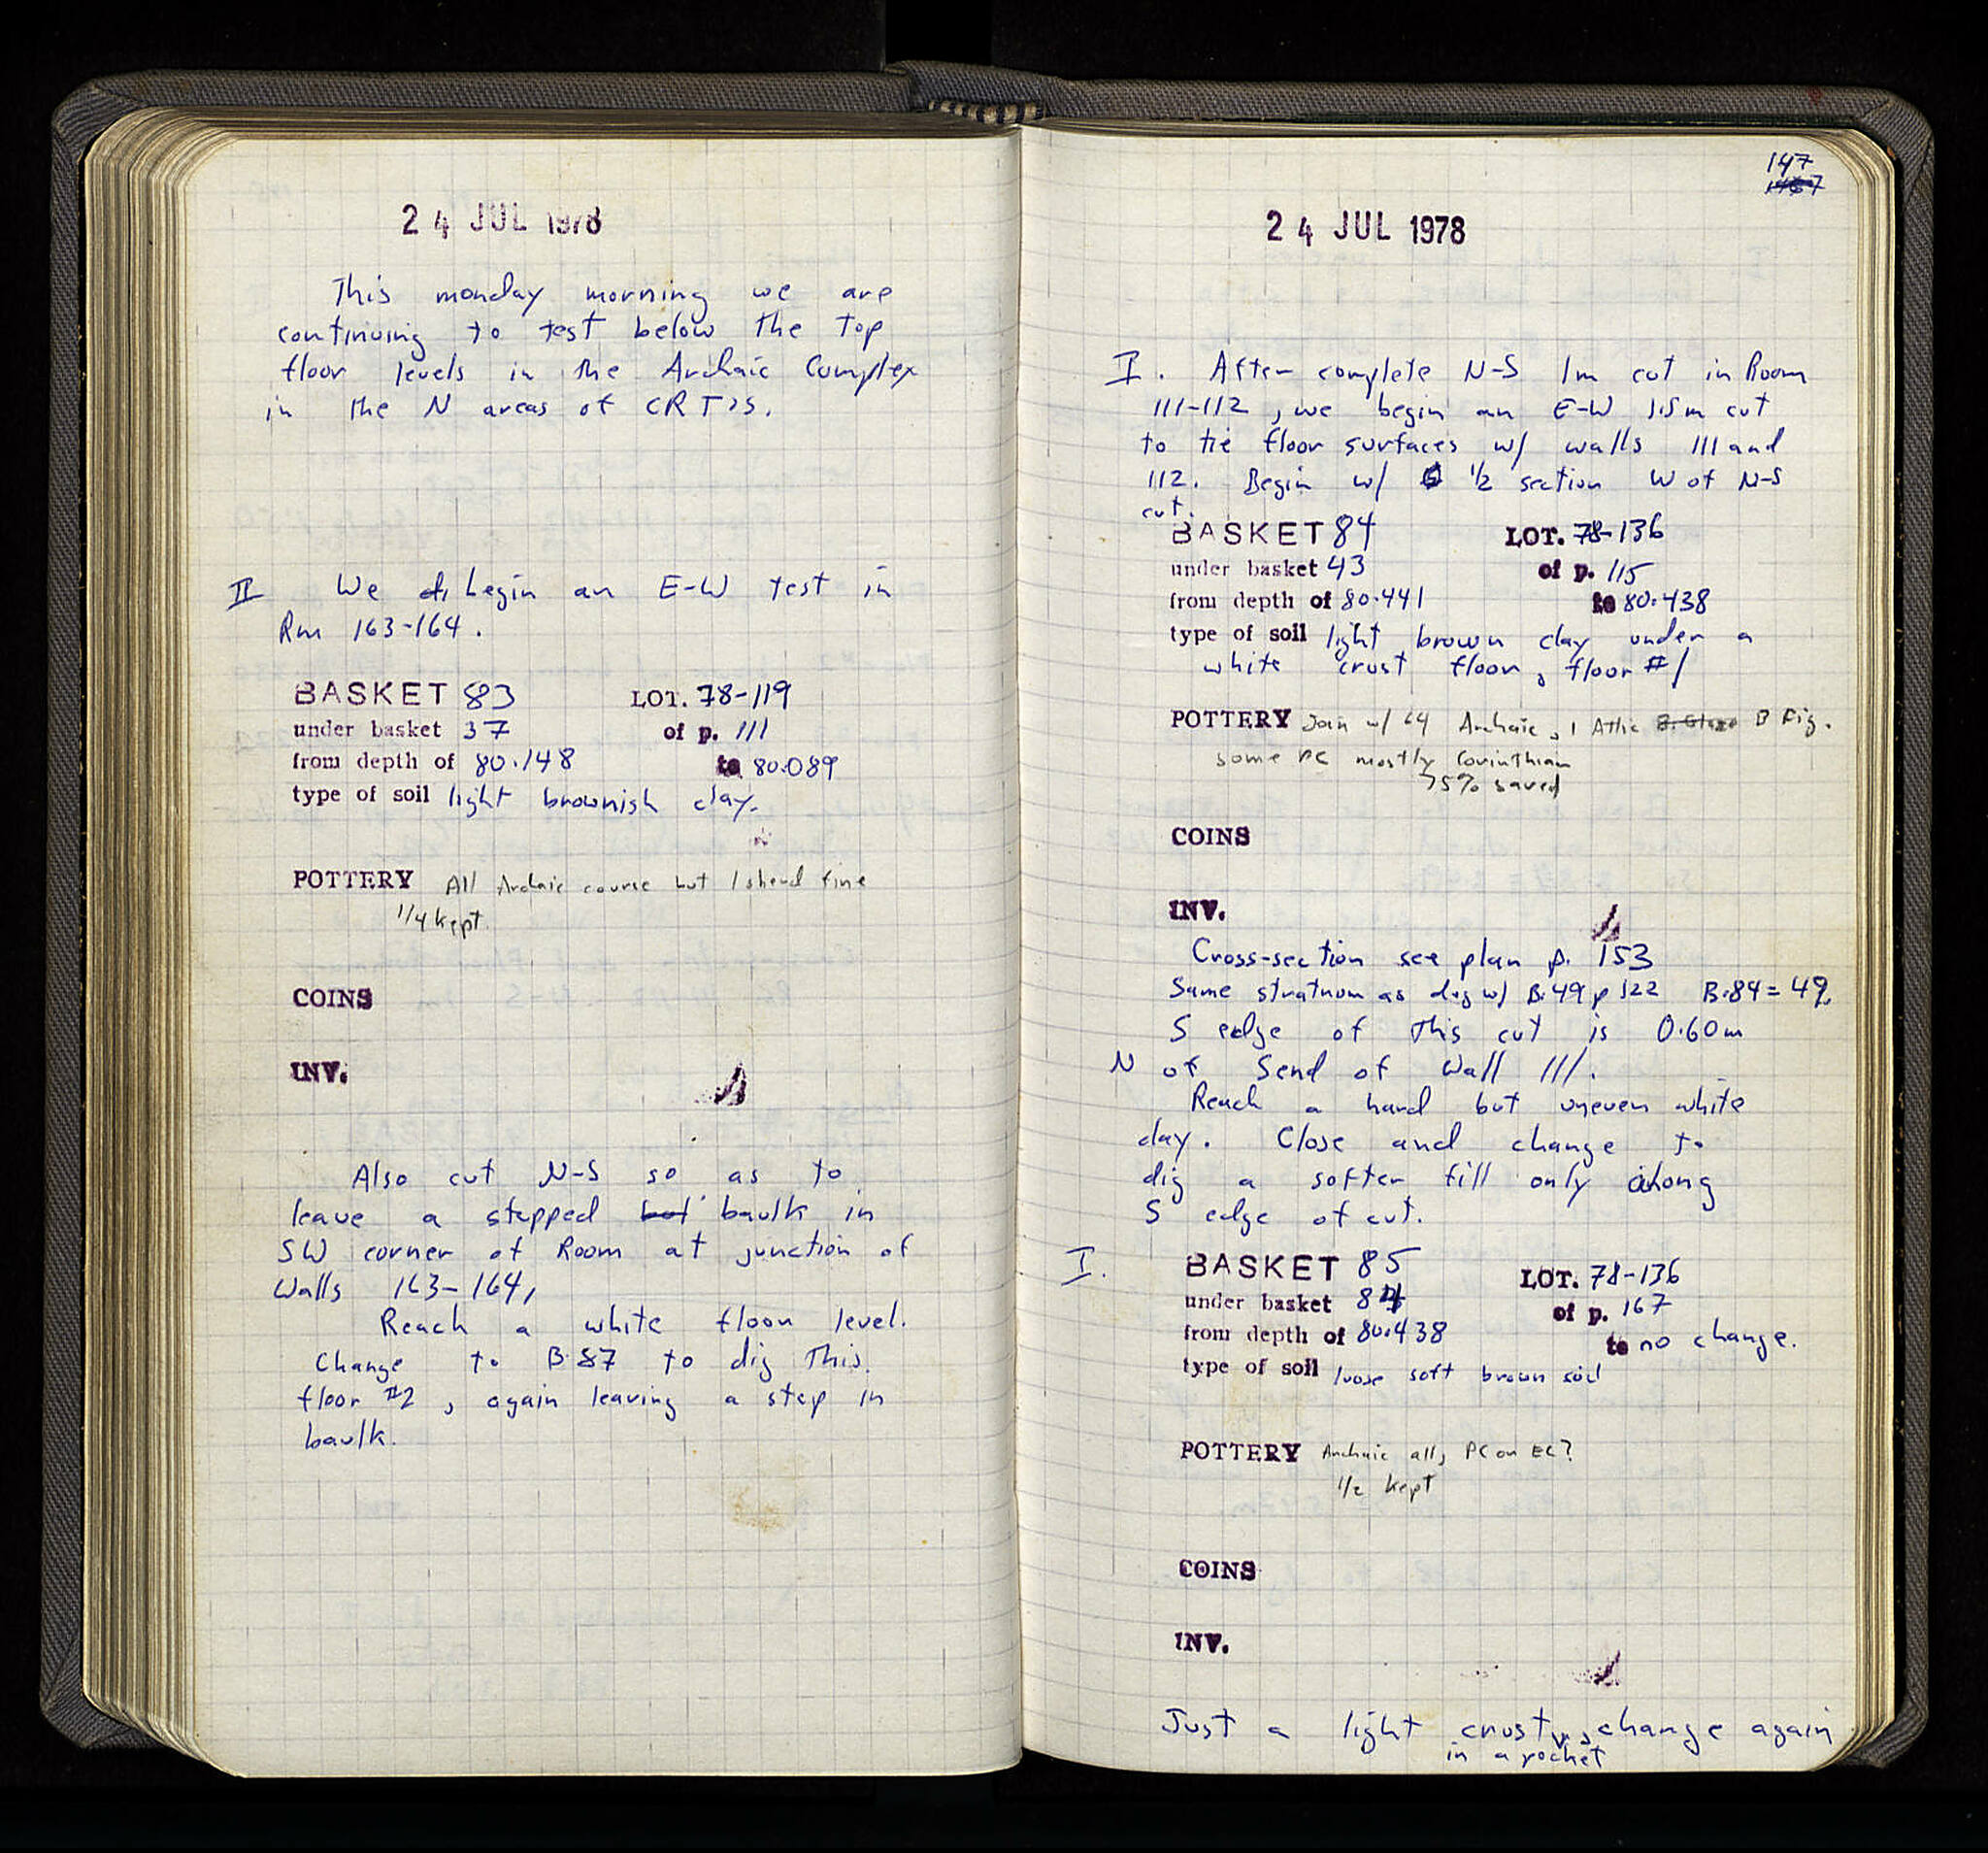 24 JUL 1978
This monday morning we are
continuing to test below the top
floor levels in the Archaic Complex
in the N areas of
II We begin an E-W test in
Rm 163-164.
BASKET 83 LOT. 78-119
under basket 37 of p. 111
from depth of 80.148 to 80.089
type of soil light brownish clay.
POTTERY All Archaic course but 1 sherd fine
1/4 kept.
COINS
INV.
Also cut N-S so as to
leave a stepped baulk in
SW corner of Room at junction of
Walls 163-164,
Reach a white floor level.
Change to B.87 to dig this.
floor #2, again leaving a step in
baulk.
147
24 JUL 1978
I. After complete N-S 1m cut in Room
111-112, we begin an E-W 1.5m cut
to tie floor surfaces w/ walls 111 and
112. Begin w/ 1/2 section W of N-S
cut.
BASKET 84 LOT. 78-136
under basket 43 of p. 115
from depth of 80.441 to 80.438
type of soil light brown clay under a
white crust floor, floor #1
POTTERY Join w/ 64 Archaic, 1 Attic B Fig.
some PC mostly Corinthian
75% saved
COINS
INV.
Cross-section see plan p. 153
Same stratum as dug w/ B.49 p 122 B.84 = 49,
S edge of this cut is 0.60m
N of S end of Wall 111.
Reach a hard but uneven white
clay. Close and change to
dig a softer fill only along
S edge of cut.
I. BASKET 85 LOT. 78-136
under basket 84 of p. 167
from depth of 80.438 to no change.
type of soil loose soft brown soil
POTTERY Archaic all, PC or EC?
1/2 kept
COINS
INV.
Just a light crust, change again
in a pocket